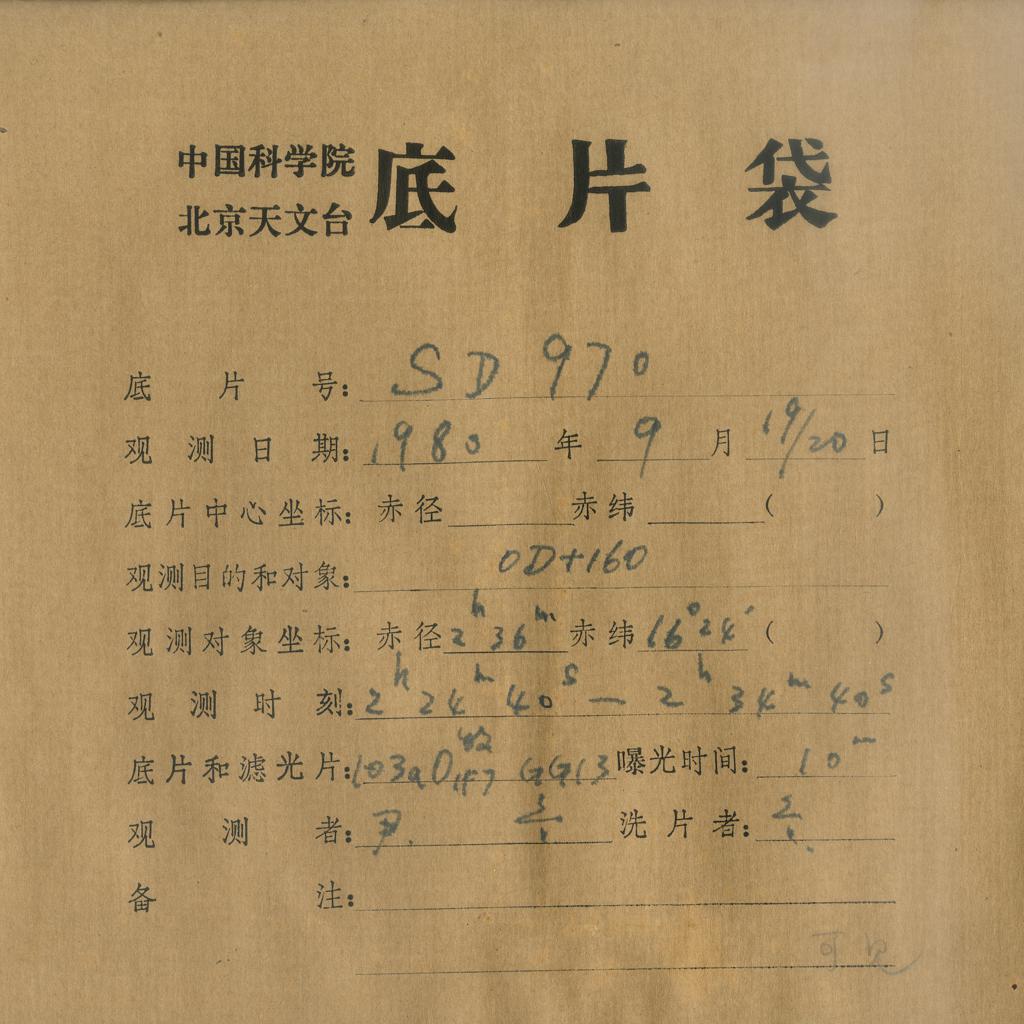 中国科学院
北京天文台
底片袋
底片号：SD 970
观测日期：1980年9月19/20日
底片中心坐标：赤径 赤纬 （ ）
观测目的和对象：OD+160
观测对象坐标：赤径2h36m赤纬16°24′（ ）
观测时刻：2h24m40s—2h34m40s
底片和滤光片：103aO GG13 曝光时间：10m
观测者：尹. 洗片者：
备注：
可见